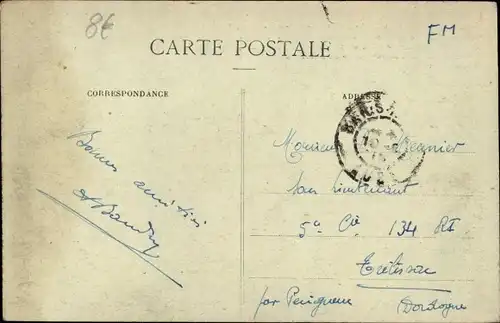 8€
FM
CARTE POSTALE
CORRESPONDANCE
ADRESSE
Bonnes amitiés
Monsieur
sous lieutenant
5e Cie 134 RI
par Perigueux
Dordogne